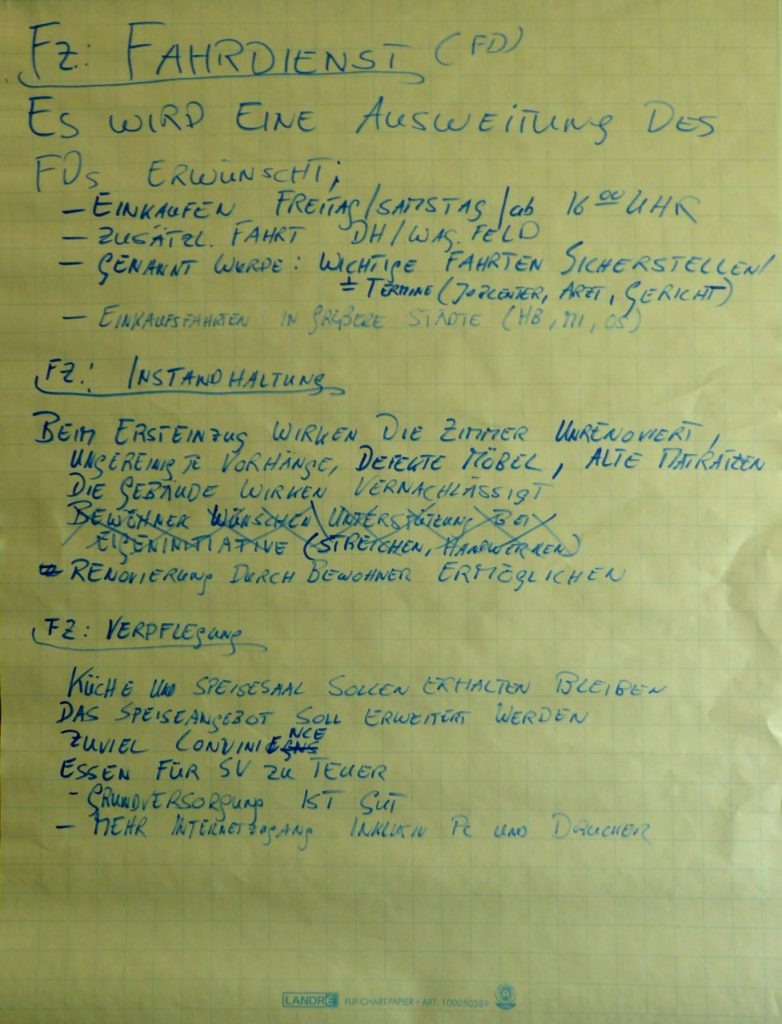 FZ: FAHRDIENST (FD)
ES WIRD EINE AUSWEITUNG DES
FDs ERWÜNSCHT;
– EINKAUFEN FREITAG/SAMSTAG/ab 16 00 UHR
– ZUSÄTZL. FAHRT DH/WAG.FELD
– GENANNT WURDE: WICHTIGE FAHRTEN SICHERSTELLEN/
= TERMINE (JOBCENTER, ARZT, GERICHT)
– EINKAUFSFAHRTEN IN GRÖßERE STÄDTE (HB, MI, OS)
FZ: INSTANDHALTUNG
BEIM ERSTEINZUG WIRKEN DIE ZIMMER UNRENOVIERT,
UNGEREINIGTE VORHÄNGE, DEFEKTE MÖBEL, ALTE MATRATZEN
DIE GEBÄUDE WIRKEN VERNACHLÄSSIGT
BEWOHNER WÜNSCHEN UNTERSTÜTZUNG BEI
EIGENINITIATIVE (STREICHEN, HANDWERKEN)
RENOVIERUNG DURCH BEWOHNER ERMÖGLICHEN
FZ: VERPFLEGUNG
KÜCHE UND SPEISESAAL SOLLEN ERHALTEN BLEIBEN
DAS SPEISEANGEBOT SOLL ERWEITERT WERDEN
ZUVIEL CONVINIENCE
ESSEN FÜR SV ZU TEUER
- GRUNDVERSORGUNG IST GUT
– MEHR INTERNETZUGANG INKLUSIV PC UND DRUCKER
LANDRÉ FLIP-CHART-PAPIER · ART. 100050589